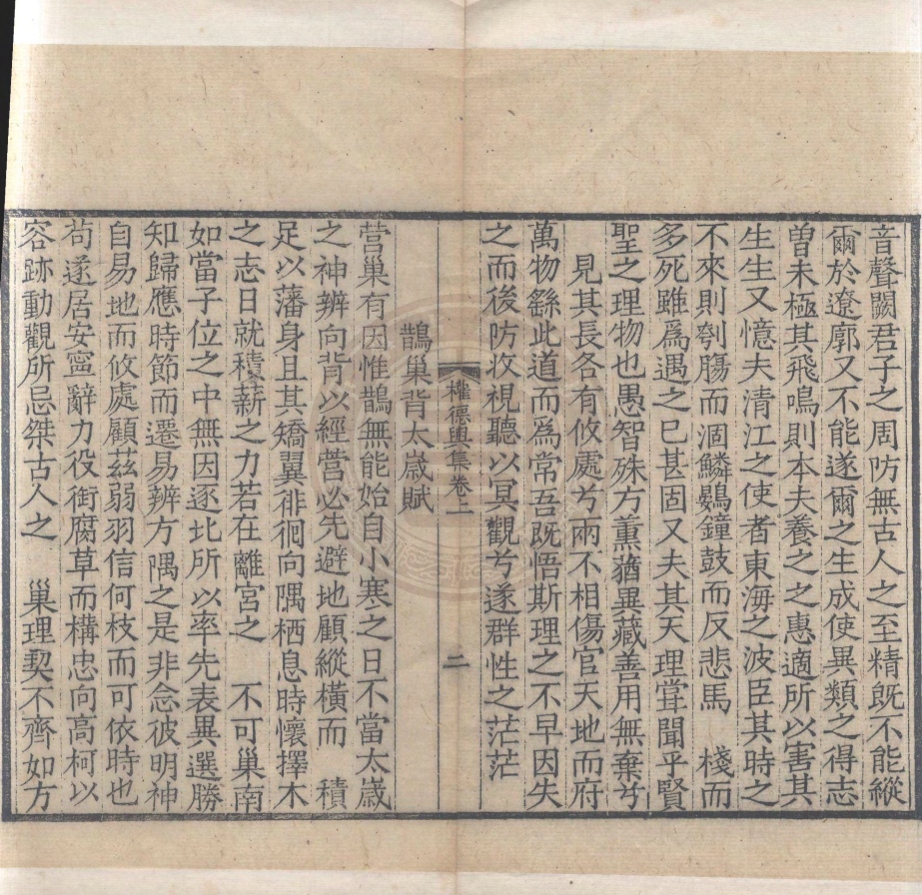 音聲闕君子之周防無古人之至精旣不能縱
爾於遼廓又不能遂爾之生成使異類之得志
曽未極其飛鳴則本夫養之之惠適所以害其
生生又憶夫清江之使者東海之波臣其時之
不來則刳膓而涸鱗鷃鐘鼓而反悲馬　棧而
多死雖爲遇之巳甚固又夫其天理甞聞乎賢
聖之理物也愚智殊方薰猶異藏善用無棄兮
見其長各有攸處兮兩不相傷官天地而府
萬物繇此道而爲常吾旣悟斯理之不早因失
之而後防收視聽以冥觀兮遂群性之茫茫
權德輿集卷上
二
鵲巢背太歲賦
营巢有因惟鵲無能始自小寒之日不當太歲
之神辨向背以經营必先避地顧縱橫而　積
足以藩身且其矯翼徘徊向隅栖息時懷擇木
之志日就積薪之力若在離宮之　不可巢南
如當子位之中無因逐北所以率先表異選勝
知歸應時節而遷易辨方隅之是非念彼明神
自易地而攸處顧茲弱羽信何枝而可依時也
苟遂居安寧辭力役銜腐草而構忠向高柯以
容跡動觀所忌桀古人之　巢理契不齊如方